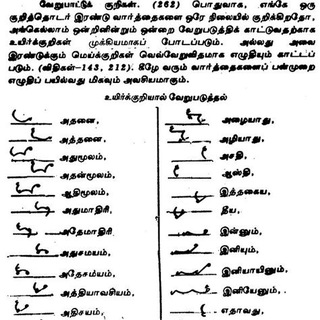 வேறுபாட்டுக் குறிகள். (262) பொதுவாக, எங்கே ஒரு
குறித்தொடர் இரண்டு வார்த்தைகளை ஒரே நிலையில் குறிக்கிறதோ,
அங்கெல்லாம் ஒன்றினின்றும் ஒன்றை வேறுபடுத்திக் காட்டுவதற்காக
உயிர்க்குறிகள் முக்கியமாகப் போடப்படும். அல்லது அவை
இரண்டுக்கும் மெய்க்குறிகள் வெவ்வேறுவிதமாக எழுதியும் காட்டப்
படும். (விதிகள்-143, 212). கீழே வரும் வார்த்தைகளைப் பன்முறை
எழுதிப் பயில்வது மிகவும் அவசியமாகும்.
உயிர்க்குறியால் வேறுபடுத்தல்
அதனை,
அத்தனை,
அதுமூலம்,
அதன்மூலம்,
ஆதிமூலம்,
அதுமாதிரி,
அதேமாதிரி,
அதுசமயம்,
அதேசமயம்,
அத்தியாவசியம்,
அதிசயம்,
அழையாது,
அழியாது,
அசதி,
ஆஸ்தி,
இத்தகைய,
தீய,
இன்னும்,
இனியும்,
இனியாயினும்,
இனியேனும்,
எதாவது,